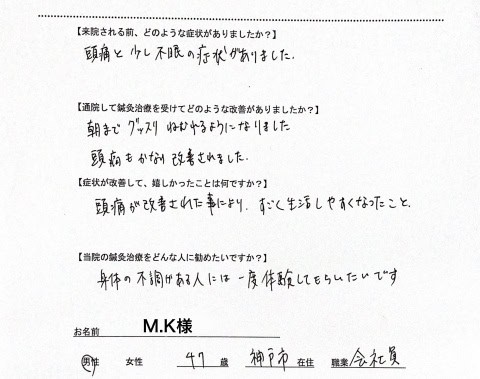 【来院される前、どのような症状がありましたか？】
頭痛と少し不眠の症状がありました.
【通院して鍼灸治療を受けてどのような改善がありましたか？】
朝までグッスリねむれるようになりました
頭痛もかなり改善されました.
【症状が改善して、嬉しかったことは何ですか？】
頭痛が改善された事により、すごく生活しやすくなったこと.
【当院の鍼灸治療をどんな人に勧めたいですか？】
身体の不調がある人には一度体験してもらいたいです
お名前 M.K様
男性 女性 47 歳 神戸市 在住 職業 会社員